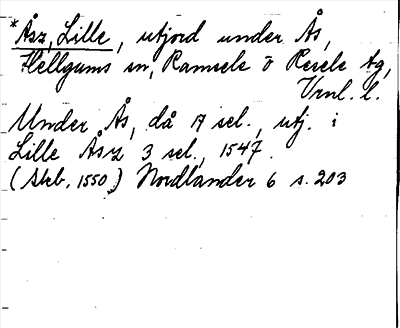 *Åsz, Lille, utjord under Ås,
Hellgums sn, Ramsele o Resele tg,
Vrnl. l.
Under Ås, då 17 sel., utj. i
Lille Åsz 3 sel., 1547.
(Skb. 1550) Nordlander 6 s. 203